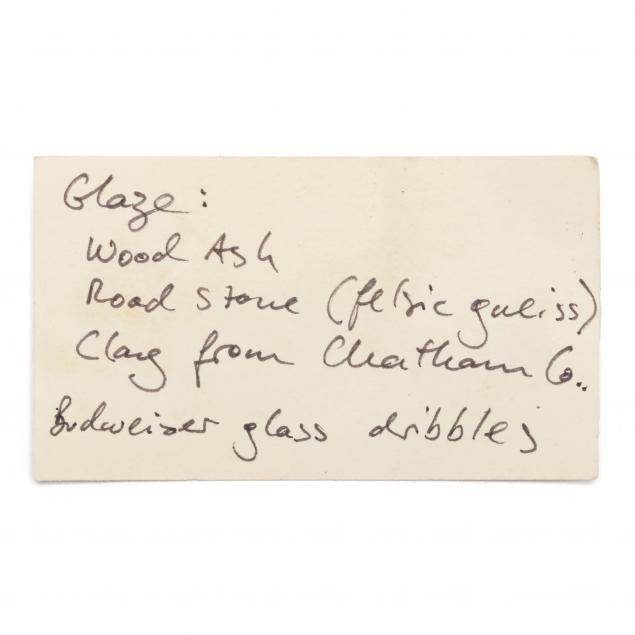 Glaze:
Wood Ash
Road Stone (felsic gneiss)
Clay from Chatham Co..
Budweiser glass dribbles